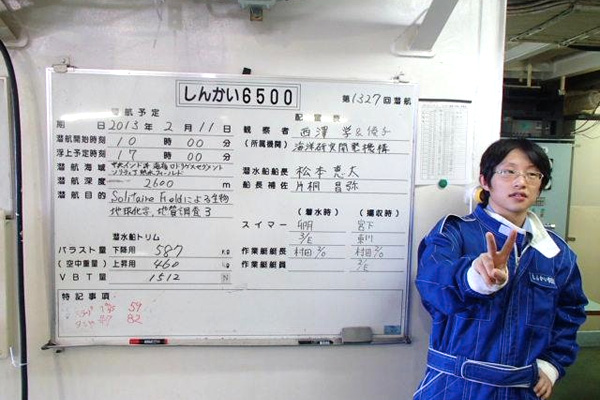 しんかい6500
第1327回潜航
潜航予定
期 日 2013年 2月 11日
潜航開始時刻 10時 00分
浮上予定時刻 17時 00分
潜航海域 中央インド洋海嶺ロドリゲスセグメント
ソリティア熱水フィールド
潜航深度 2600 m
潜航目的 Solitaire Fieldによる生物
地球化学、地質調査3
潜水船トリム
バラスト量 下降用 587 kg
(空中重量) 上昇用 460 kg
VBT量 1512 N
特記事項
59
82
配置表
観察者 西澤 学&優子
(所属機関) 海洋研究開発機構
潜水船船長 松本恵太
船長補佐 片桐昌弥
(潜水時) (揚収時)
スイマー 宮下
3/E 重川
作業艇艇長 村田2/0 村田2/0
作業艇艇員 2/E